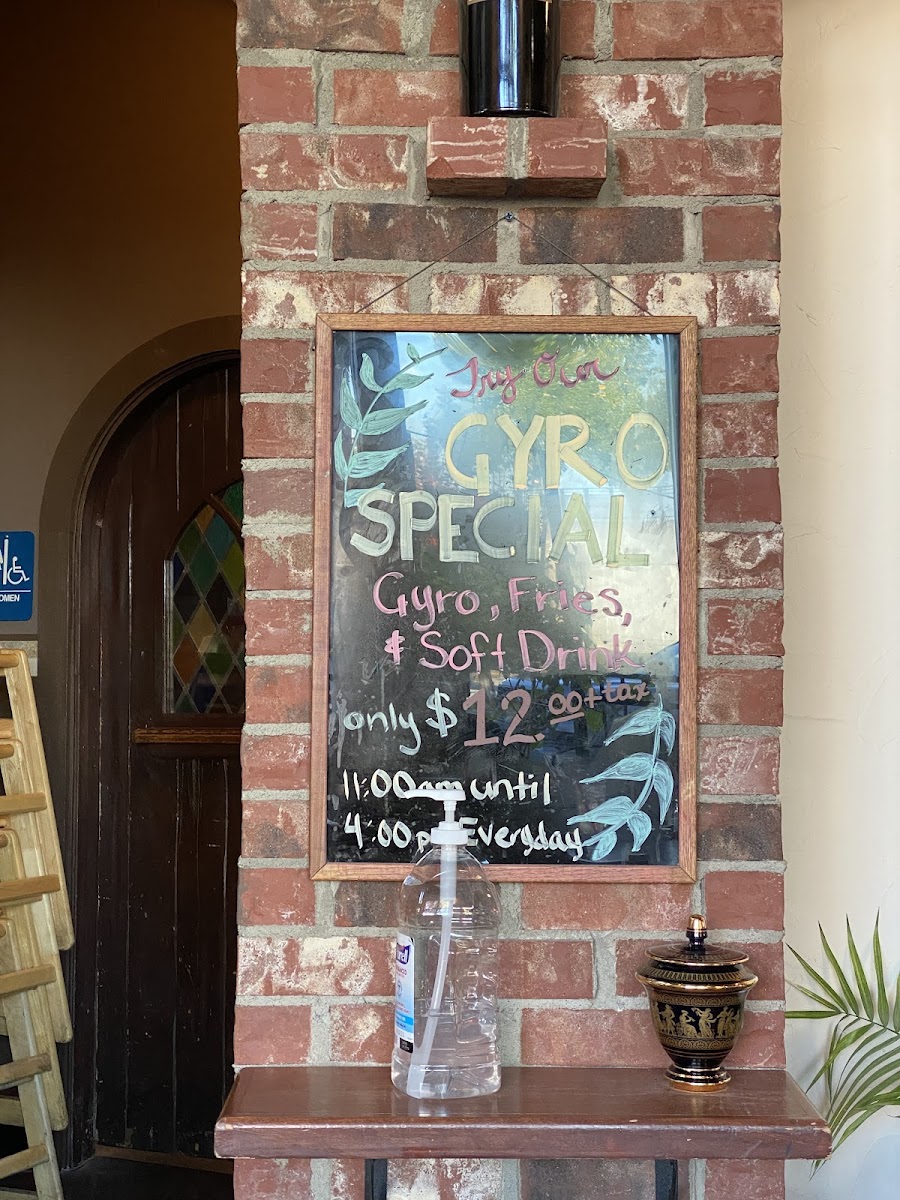 Try Our
GYRO
SPECIAL
Gyro, Fries,
& Soft Drink
only $12.00 + tax
11:00am until
4:00 p Everyday
OMEN